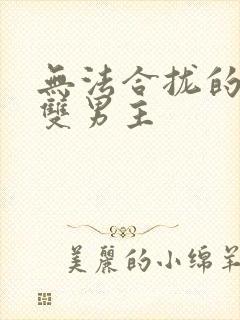 無法合拢的
雙男主
美麗的小绵羊